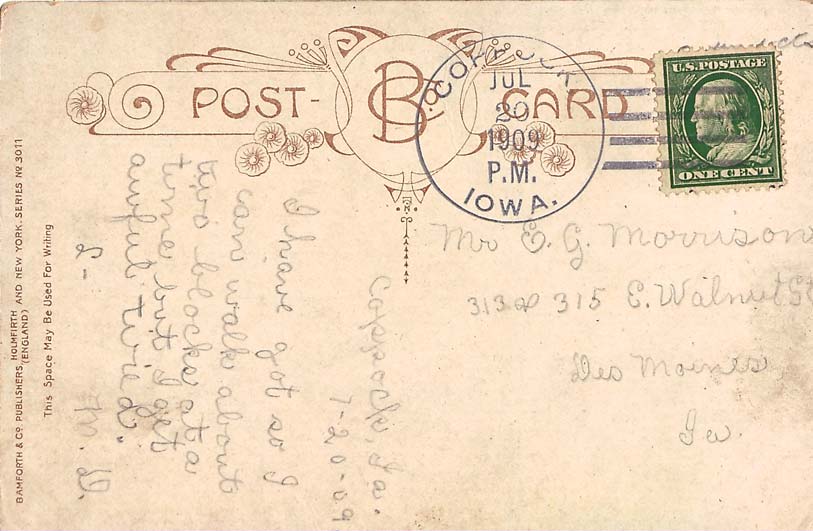 POST-CARD
B&Co
COPPOCK
JUL
20
1909
P.M.
IOWA.
U.S. POSTAGE
ONE CENT
Mr E. G. Morrison
313 & 315 E. Walnut St
Des Moines
Ia.
Coppock, Ia.
7-20-09
I have got so I
can walk about
two blocks at a
time but I get
awful tired.
M. D.
This Space May Be Used For Writing
BAMFORTH & Co. PUBLISHERS, HOLMFIRTH AND NEW YORK. SERIES No 3011
(ENGLAND)